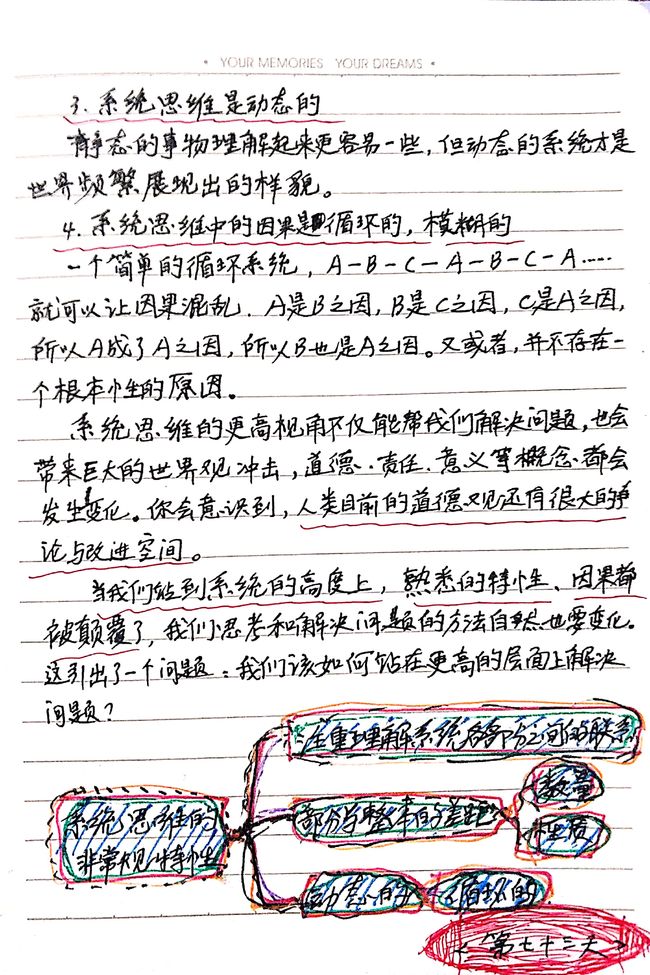 • YOUR MEMORIES YOUR DREAMS •
3. 系统思维是动态的
静态的事物理解起来更容易一些，但动态的系统才是
世界频繁展现出的样貌。
4. 系统思维中的因果是循环的，模糊的
一个简单的循环系统，A－B－C－A－B－C－A……
就可以让因果混乱．A是B之因，B是C之因，C是A之因，
所以A成了A之因，所以B也是A之因。又或者，并不存在一
个根本性的原因。
系统思维的更高视角不仅能帮我们解决问题，也会
带来巨大的世界观冲击，道德．责任．意义等概念都会
发生变化。你会意识到，人类目前的道德观还有很大的争
论与改进空间。
当我们站到系统的高度上，熟悉的特性、因果都
被颠覆了，我们思考和解决问题的方法自然也要变化。
这引出了一个问题：我们该如何站在更高的层面上解决
问题？
注重理解系统各部分之间的联系
系统思维的
非常规特性
部分与整体的差距
数量
性质
动态的
循环的
<第七十三天>